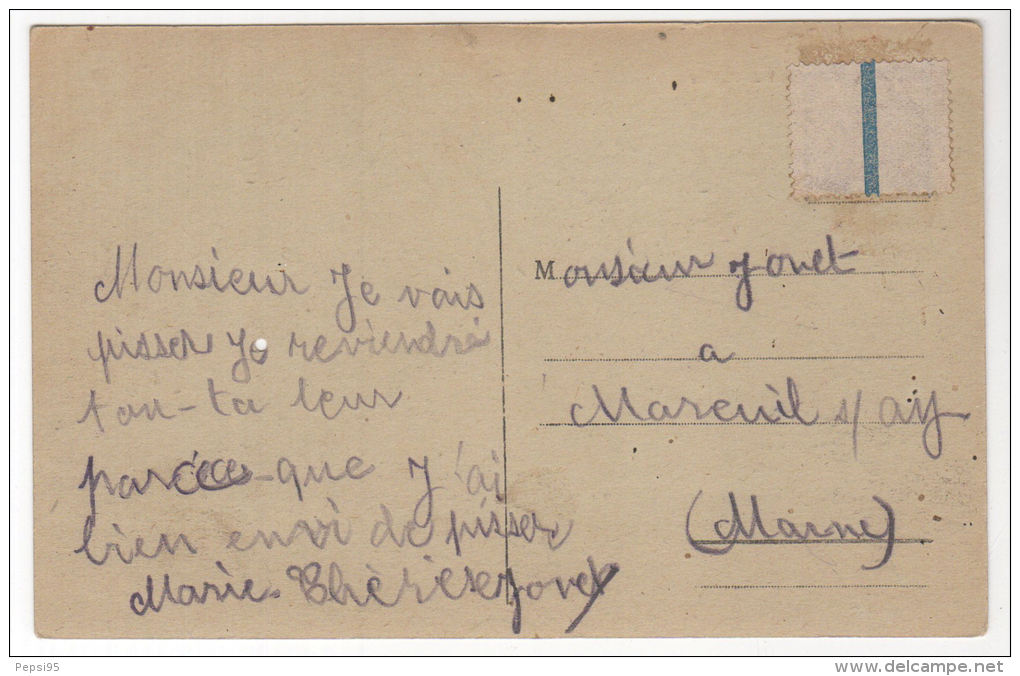 Monsieur Je vais
pisser Je reviendré
tou-ta leur
parce-que J'ai
bien envi de pisser
Marie-Thèrèse Jovet
Monsieur Jovet
a
Mareuil s/ ay
(Marne)
Pepsi95
www.delcampe.net